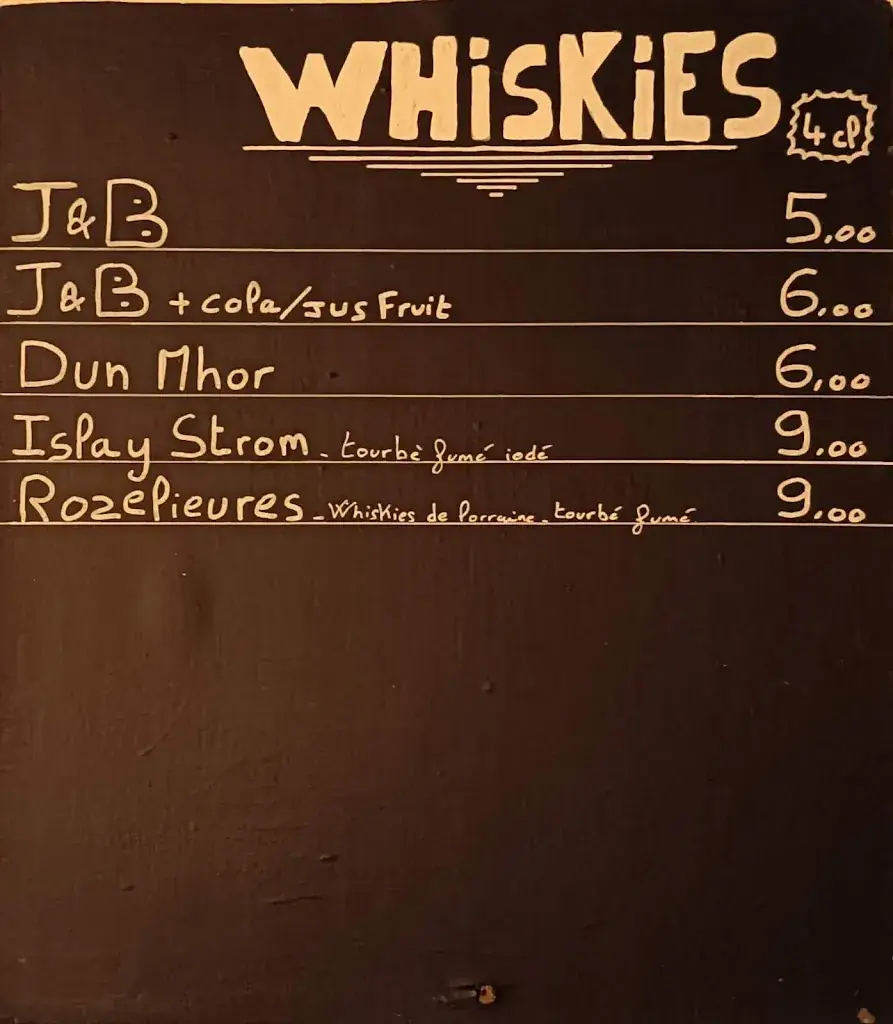 WHiSKiES 4 cl
J&B 5,00
J&B + cola/jus Fruit 6,00
Dun Mhor 6,00
Islay Strom - tourbè fumé iodé 9,00
Rozelieures - Whiskies de lorraine - tourbé fumé 9,00